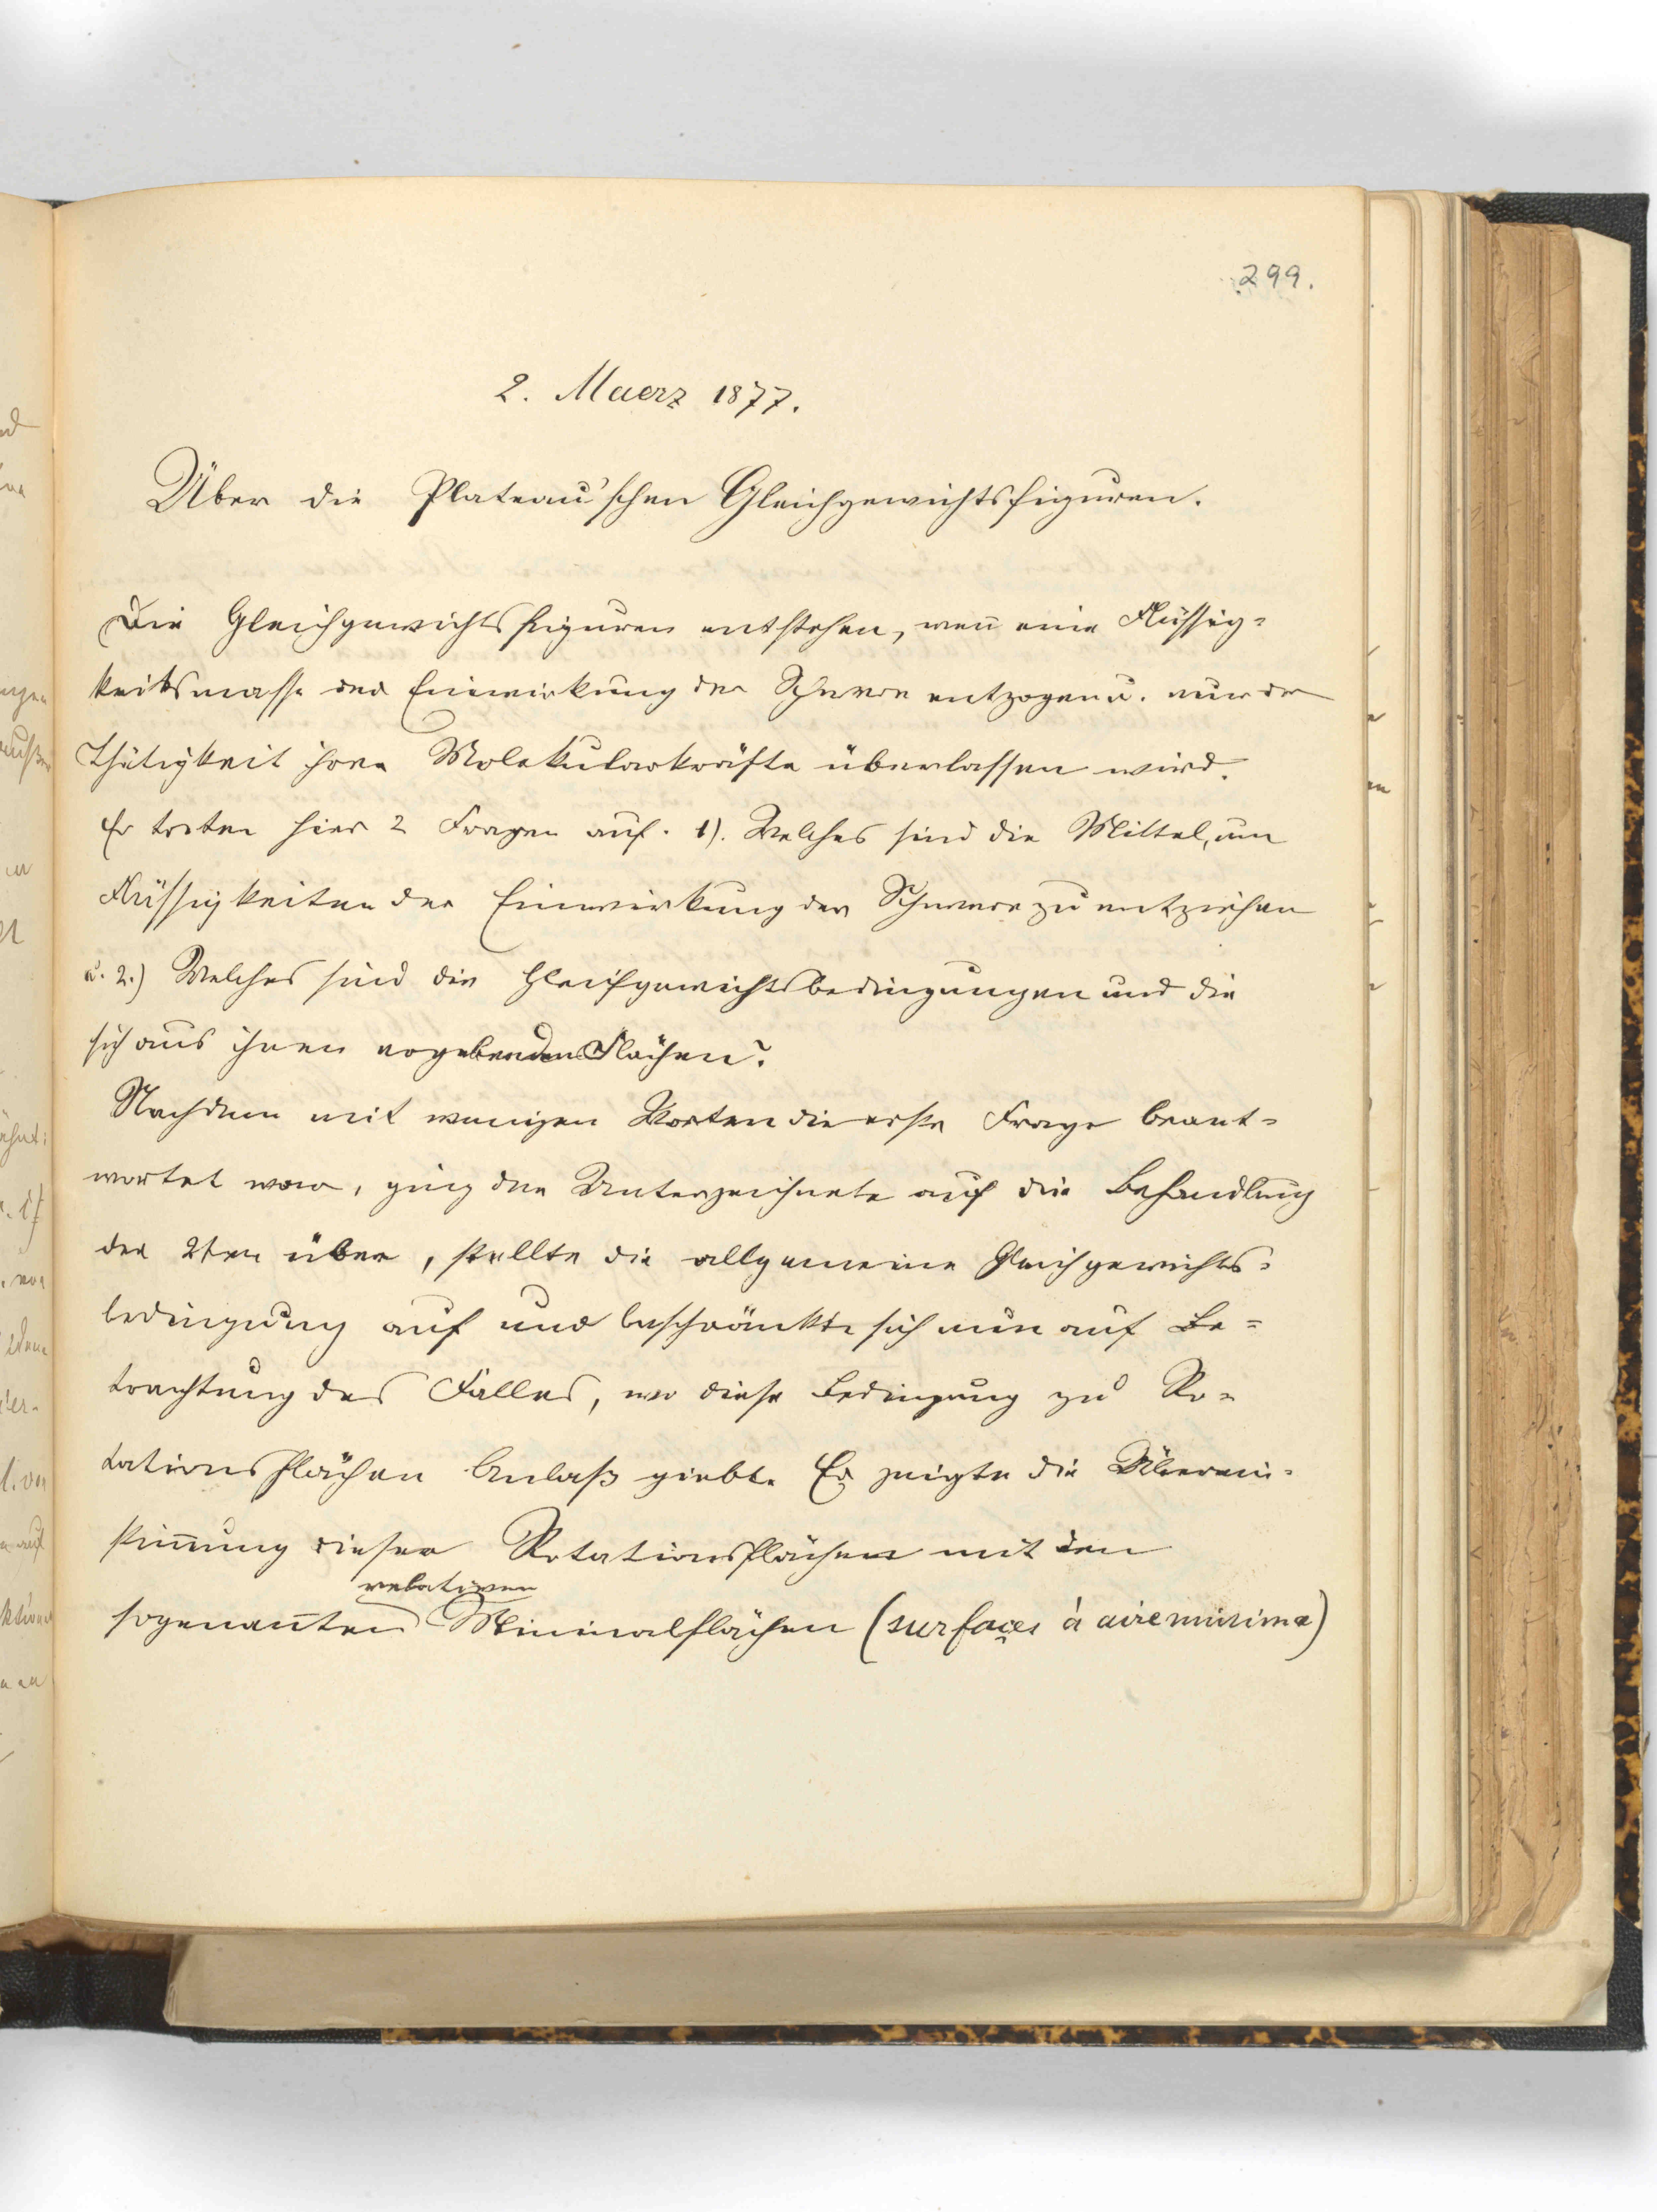 299.
2. Maerz 1877.
Über die Plateau'schen Gleichgewichtsfiguren.
Die Gleichgewichtsfiguren entstehen, wen̄ eine Flüssig=
keitsmasse der Einwirkung der Schwere entzogen u. nur der
Thätigkeit ihrer Molekularkräfte überlassen wird.
Es treten hier 2 Fragen auf. 1). Welches sind die Mittel, um
Flüssigkeiten der Einwirkung der Schwere zu entziehen
u. 2.) Welches sind die Gleichgewichtsbedingungen und die
sich aus ihnen ergebenden Flächen?
Nachdem mit wenigen Worten die erste Frage beant=
wortet war, ging der Unterzeichnete auf die Behandlung
der 2ten über, stellte die allgemeine Gleichgewichts=
bedingung auf und beschränkte sich nun auf Be=
trachtung des Falles, wo diese Bedingung zu Ro=
tationsflächen Anlaß giebt. Er zeigte die Überein=
stim̄ung dieser Rotationsflächen mit den
relativen
sogenan̄ten Minimalflächen (surfaces à aire minima)